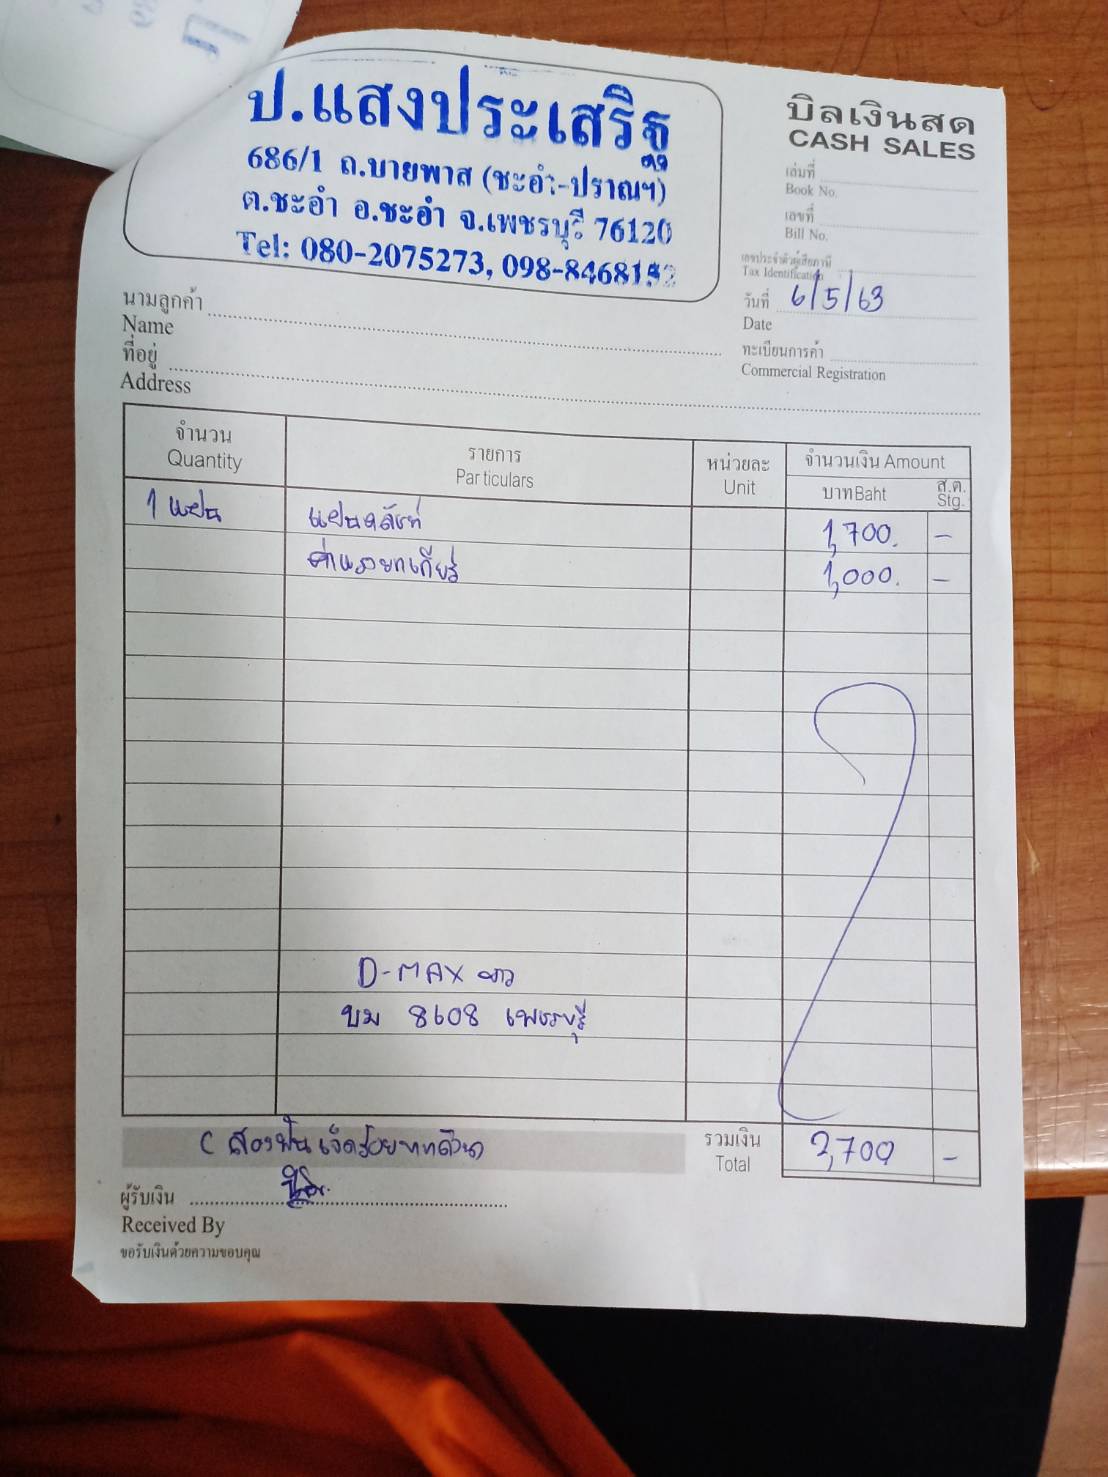 ป.แสงประเสริฐ
686/1 ถ.บายพาส (ชะอำ-ปราณฯ)
ต.ชะอำ อ.ชะอำ จ.เพชรบุรี 76120
Tel: 080-2075273, 098-8468152
บิลเงินสด
CASH SALES
เล่มที่
Book No.
เลขที่
Bill No.
เลขประจำตัวผู้เสียภาษี
Tax Identification
วันที่ 6/5/63
Date
ทะเบียนการค้า
Commercial Registration
นามลูกค้า
Name
ที่อยู่
Address
จำนวน รายการ หน่วยละ จำนวนเงิน Amount
Quantity Particulars Unit บาท Baht ส.ต. Stg.
1 แผ่น แผ่นคลัชท์ 1,700. -
ค่าแรงยกเกียร์ 1,000. -
D-MAX ขาว
บม 8608 เพชรบุรี
( สองพันเจ็ดร้อยบาทถ้วน รวมเงิน 2,700 -
Total
ผู้รับเงิน
Received By
ขอรับเงินด้วยความขอบคุณ